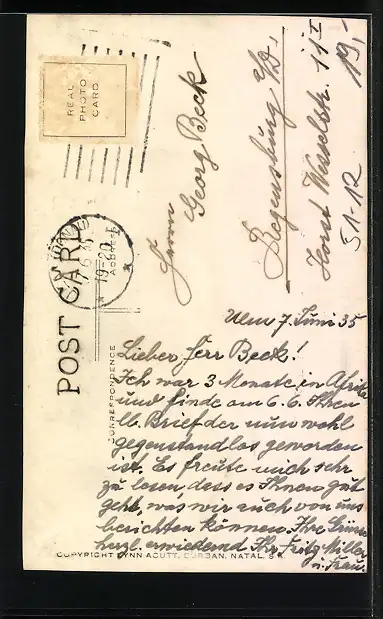 REAL
PHOTO
CARD
POST CARD
ADDRESS
CORRESPONDENCE
Herrn
Georg Beck
Regensburg a/D.
Horst Wesselstr. 11 I
51-12
19,-
Ulm 7. Juni 35
Lieber Herr Beck!
Ich war 3 Monate in Afrika
und finde am 6.6. Ihren
lb. Brief der nun wohl
gegenstandlos geworden
ist. Es freute mich sehr
zu lesen, dass es Ihnen gut
geht, was wir auch von uns
berichten können. Ihre Grüsse
herzl. erwiedernd Ihr Fritz Miller
u. Frau.
COPYRIGHT LYNN ACUTT, DURBAN, NATAL, S.A.